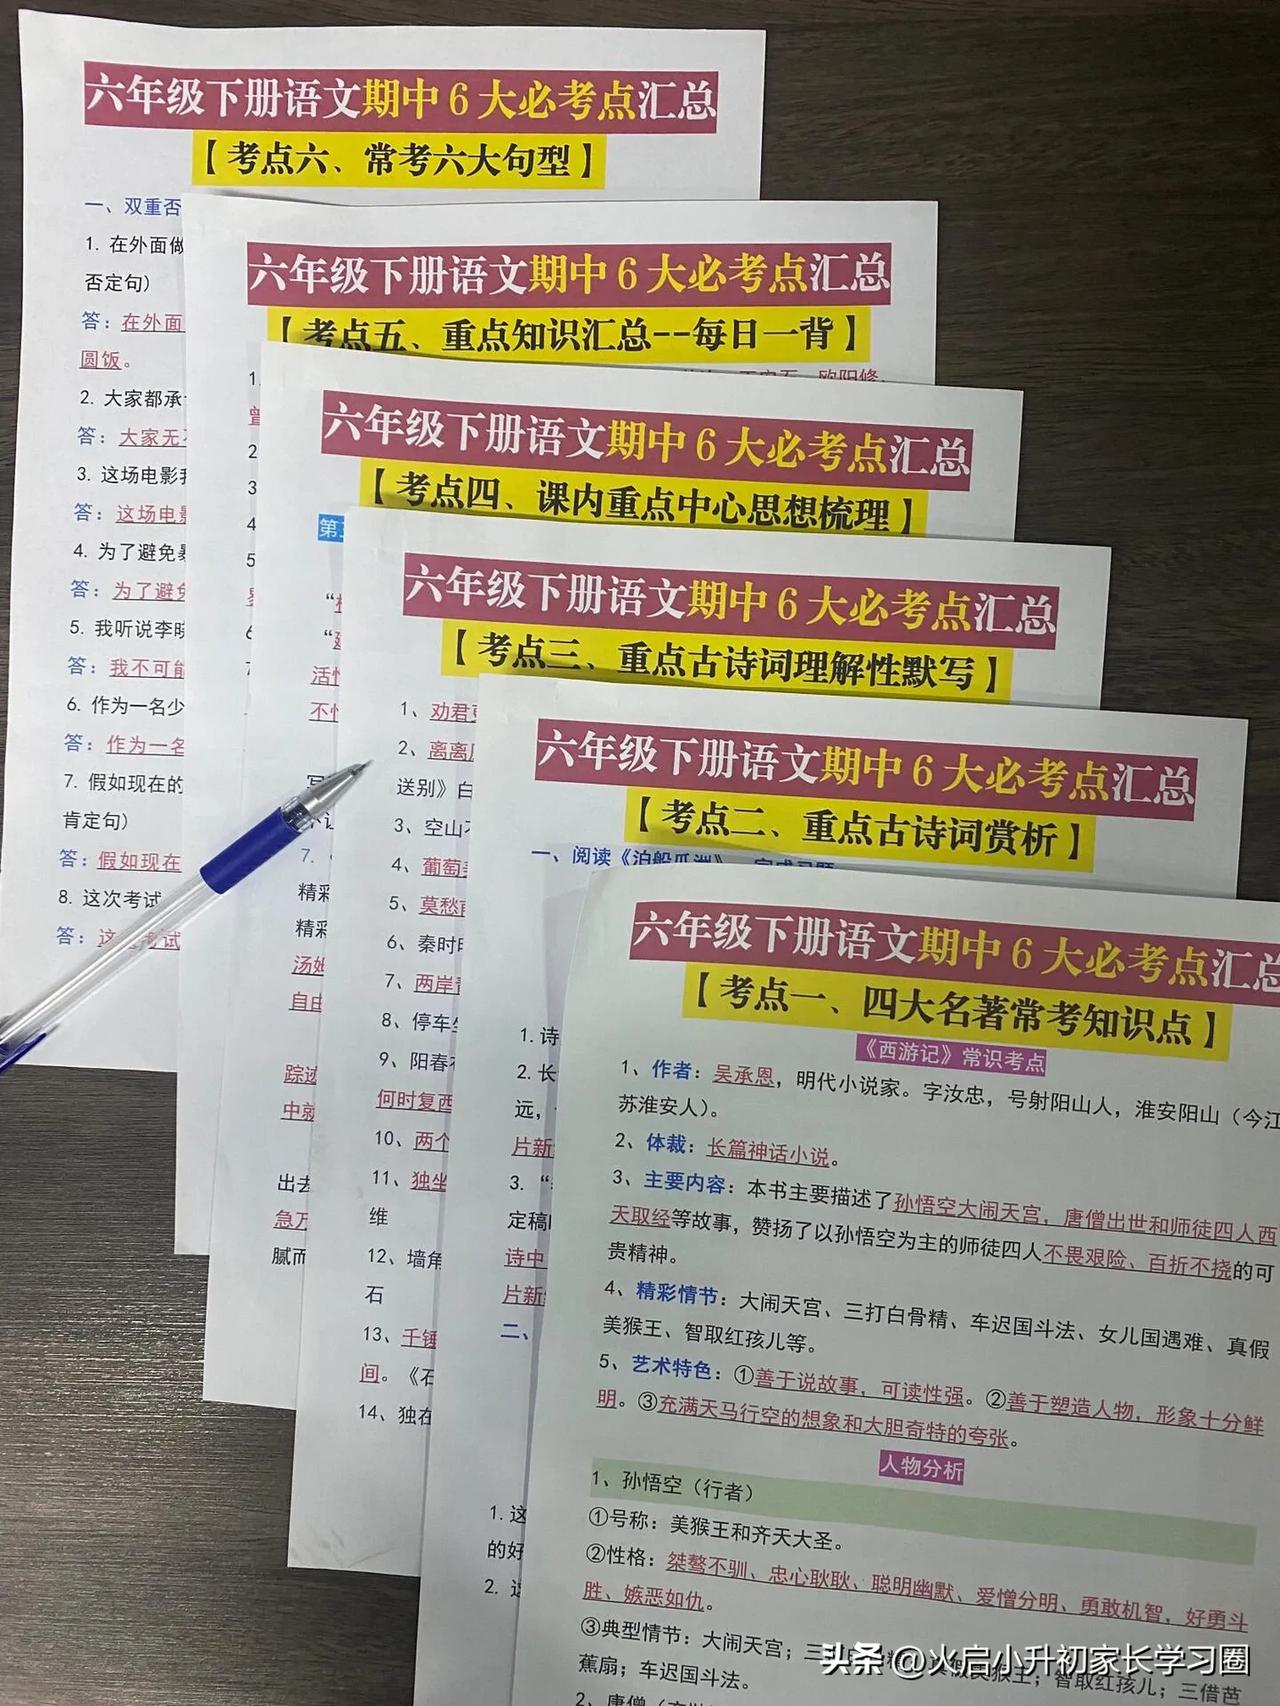 六年级下册语文期中6大必考点汇总
【考点六、常考六大句型】
一、双重否
1. 在外面做
否定句)
答：在外面
圆饭。
2. 大家都承
答：大家无
3. 这场电影
答：这场电影
4. 为了避免
答：为了避免
5. 我听说李
答：我不可能
6. 作为一名少
答：作为一名
7. 假如现在的
肯定句)
答：假如现在
8. 这次考试
答：这 考试
六年级下册语文期中6大必考点汇总
【考点五、重点知识汇总--每日一背】
1.
王安石、欧阳修、
曾
2
3
4
5
6
7
六年级下册语文期中6大必考点汇总
【考点四、课内重点中心思想梳理】
第
活
不
写
7.
精彩
精彩
汤姆
自由
踪迹
中就
出去
急万
腻而
六年级下册语文期中6大必考点汇总
【考点三、重点古诗词理解性默写】
1、劝君
2、离离
送别》白
3、空山
4、葡萄
5、莫愁前
6、秦时
7、两岸
8、停车
9、阳春
何时复西
10、两个
11、独坐
维
12、墙角
石
13、千锤
间。《石
14、独在
六年级下册语文期中6大必考点汇总
【考点二、重点古诗词赏析】
一、阅读《泊船瓜洲》，完成习题
1. 诗
2. 长
远，
片新
3. “
定稿
诗中
片新
二、
1. 这
的好
2. 这
六年级下册语文期中6大必考点汇总
【考点一、四大名著常考知识点】
《西游记》常识考点
1、作者：吴承恩，明代小说家。字汝忠，号射阳山人，淮安阳山（今江
苏淮安人）。
2、体裁：长篇神话小说。
3、主要内容：本书主要描述了孙悟空大闹天宫，唐僧出世和师徒四人西
天取经等故事，赞扬了以孙悟空为主的师徒四人不畏艰险、百折不挠的可
贵精神。
4、精彩情节：大闹天宫、三打白骨精、车迟国斗法、女儿国遇难、真假
美猴王、智取红孩儿等。
5、艺术特色：①善于说故事，可读性强。②善于塑造人物，形象十分鲜
明。③充满天马行空的想象和大胆奇特的夸张。
人物分析
1、孙悟空（行者）
①号称：美猴王和齐天大圣。
②性格：桀骜不驯、忠心耿耿、聪明幽默、爱憎分明、勇敢机智，好勇斗
胜、嫉恶如仇。
③典型情节：大闹天宫；三打白骨精；真假美猴王；智取红孩儿；三借芭
蕉扇；车迟国斗法。
2、唐僧
头条 @火启小升初家长学习圈